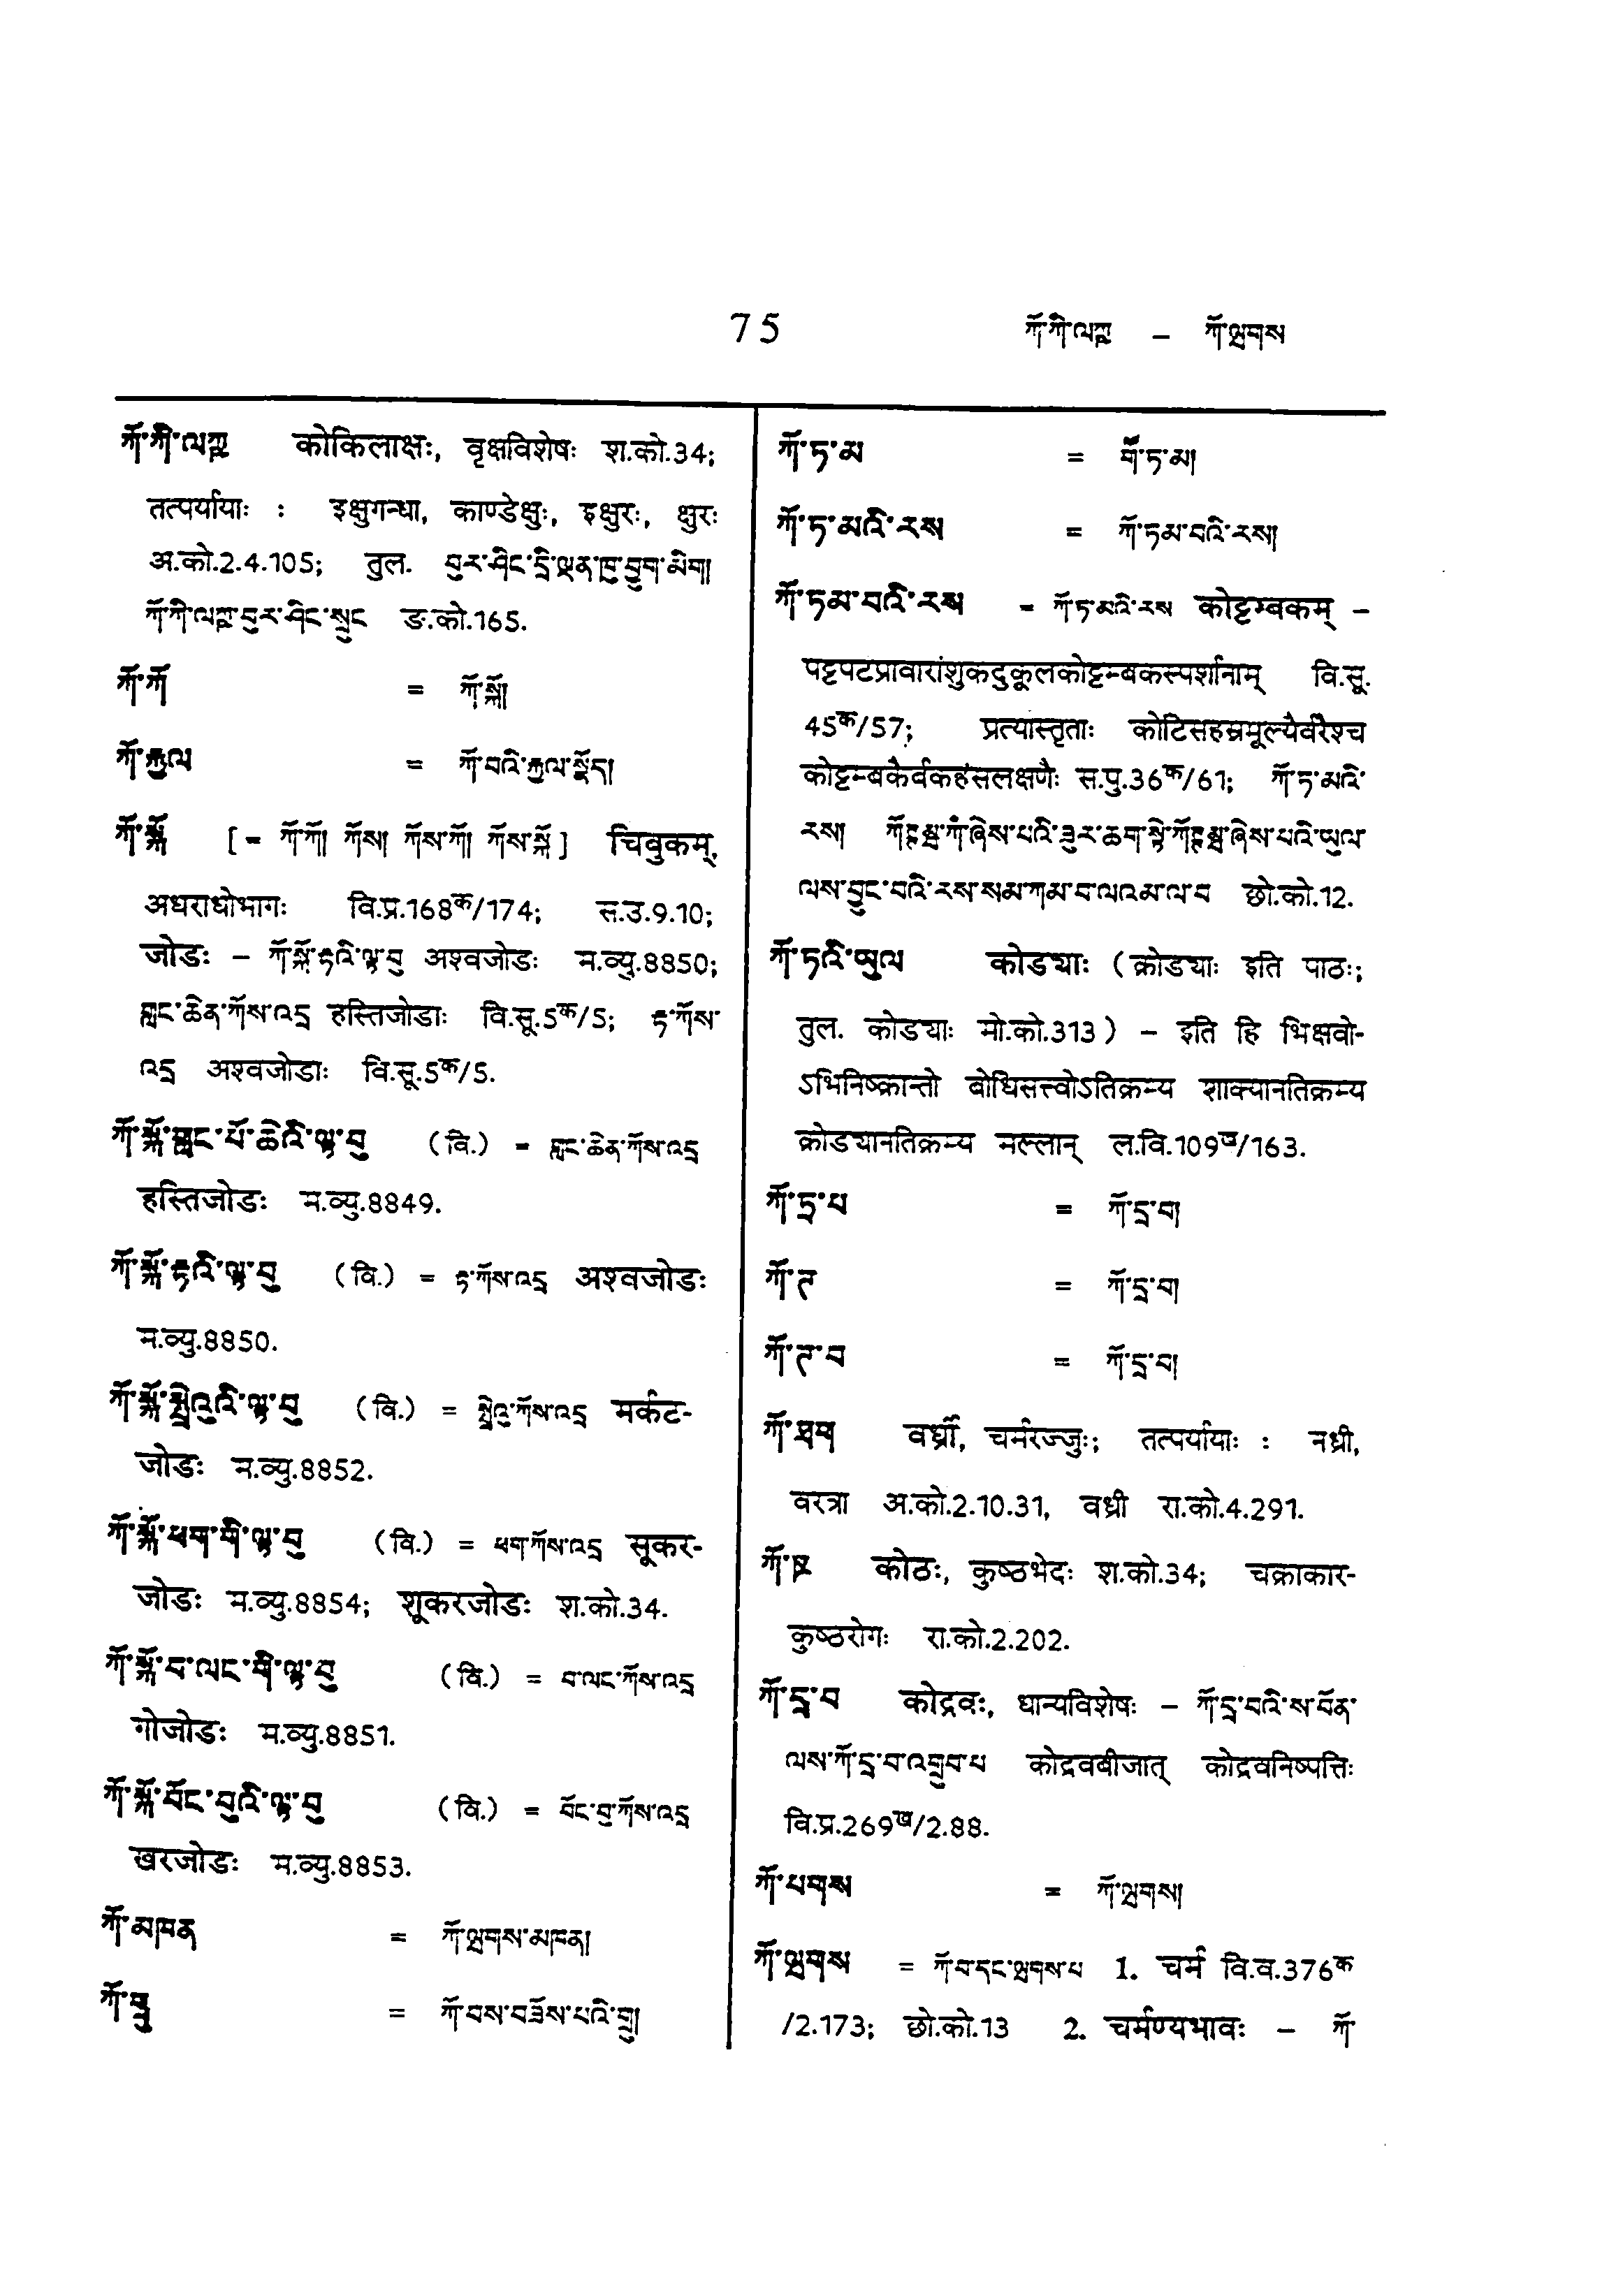 75
ཀོ་ཀི་ལཀྵ – ཀོ་ལྤགས
ཀོ་ཀི་ལཀྵ कोकिलाक्षः, वृक्षविशेषः श.को.34;
तत्पर्यायाः : इक्षुगन्धा, काण्डेक्षुः, इक्षुरः, क्षुरः
अ.को.2.4.105; तुल. བུར་ཤིང་དྲི་ལྡན་ཁུ་བྱུག་མིག།
ཀོ་ཀི་ལཀྵ་བུར་ཤིང་སྲུང ङ.को.165.
ཀོ་ཀོ = ཀོ་སྐོ།
ཀོ་རྐྱལ = ཀོ་བའི་རྐྱལ་སྣོད།
ཀོ་སྐོ [= ཀོ་ཀོ། ཀོས། ཀོས་ཀོ། ཀོས་སྐོ] चिवुकम्,
अधराधोभागः वि.प्र.168क/174; स.उ.9.10;
जोडः – ཀོ་སྐོ་རྟའི་ལྟ་བུ अश्वजोडः म.व्यु.8850;
གླང་ཆེན་ཀོས་འདྲ हस्तिजोडाः वि.सू.5क/5; རྟ་ཀོས་
འདྲ अश्वजोडाः वि.सू.5क/5.
ཀོ་སྐོ་གླང་པོ་ཆེའི་ལྟ་བུ (वि.) = གླང་ཆེན་ཀོས་འདྲ
हस्तिजोडः म.व्यु.8849.
ཀོ་སྐོ་རྟའི་ལྟ་བུ (वि.) = རྟ་ཀོས་འདྲ अश्वजोडः
म.व्यु.8850.
ཀོ་སྐོ་སྤྲེའུའི་ལྟ་བུ (वि.) = སྤྲེའུ་ཀོས་འདྲ मर्कट-
जोडः म.व्यु.8852.
ཀོ་སྐོ་ཕག་གི་ལྟ་བུ (वि.) = ཕག་ཀོས་འདྲ सूकर-
जोडः म.व्यु.8854; शूकरजोडः श.को.34.
ཀོ་སྐོ་བ་ལང་གི་ལྟ་བུ (वि.) = བ་ལང་ཀོས་འདྲ
गोजोडः म.व्यु.8851.
ཀོ་སྐོ་བོང་བུའི་ལྟ་བུ (वि.) = བོང་བུ་ཀོས་འདྲ
खरजोडः म.व्यु.8853.
ཀོ་མཁན = ཀོ་ལྤགས་མཁན།
ཀོ་གྲུ = ཀོ་བས་བཟོས་པའི་གྲུ།
ཀོ་ཏ་མ = གོ་ཏ་མ།
ཀོ་ཏ་མའི་རས = ཀོ་ཏམ་བའི་རས།
ཀོ་ཏམ་བའི་རས = ཀོ་ཏ་མའི་རས कोट्टम्वकम् –
पट्टपटप्रावारांशुकदुकूलकोट्टम्बकस्पर्शानाम् वि.सू.
45क/57; प्रत्यास्तृताः कोटिसहस्रमूल्यैर्वरैश्च
कोट्टम्बकैर्वकहंसलक्षणैः स.पु.36क/61; ཀོ་ཏ་མའི་
རས། ཀོཊྚམྦ་ཀཾ་ཞེས་པའི་ཟུར་ཆག་སྟེ་ཀོཊྚམྦ་ཞེས་པའི་ཡུལ་
ལས་བྱུང་བའི་རས་སམ་ཀམ་བ་ལའམ་ལ་བ छो.को.12.
ཀོ་ཏའི་ཡུལ कोड्याः (क्रोड्याः इति पाठः;
तुल. कोड्याः मो.को.313) – इति हि भिक्षवो-
ऽभिनिष्क्रान्तो बोधिसत्त्वोऽतिक्रम्य शाक्यानतिक्रम्य
क्रोड्यानतिक्रम्य मल्लान् ल.वि.109ख/163.
ཀོ་ཏྲ་པ = ཀོ་དྲ་བ།
ཀོ་ཊ = ཀོ་དྲ་བ།
ཀོ་ཊ་བ = ཀོ་དྲ་བ།
ཀོ་ཐག वर्ध्री, चर्मरज्जुः; तत्पर्यायाः : नध्री,
वरत्रा अ.को.2.10.31, वध्री रा.को.4.291.
ཀོ་ཋ कोठः, कुष्ठभेदः श.को.34; चक्राकार-
कुष्ठरोगः रा.को.2.202.
ཀོ་དྲ་བ कोद्रवः, धान्यविशेषः – ཀོ་དྲ་བའི་ས་བོན་
ལས་ཀོ་དྲ་བ་འགྲུབ་པ कोद्रवबीजात् कोद्रवनिष्पत्तिः
वि.प्र.269ख/2.88.
ཀོ་པགས = ཀོ་ལྤགས།
ཀོ་ལྤགས = ཀོ་བ་དང་ལྤགས་པ 1. चर्म वि.व.376क
/2.173; छो.को.13 2. चर्मण्यभावः – ཀོ་